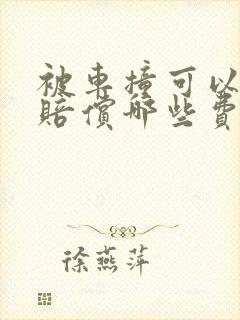 被車撞可以
賠償哪些費
徐燕萍